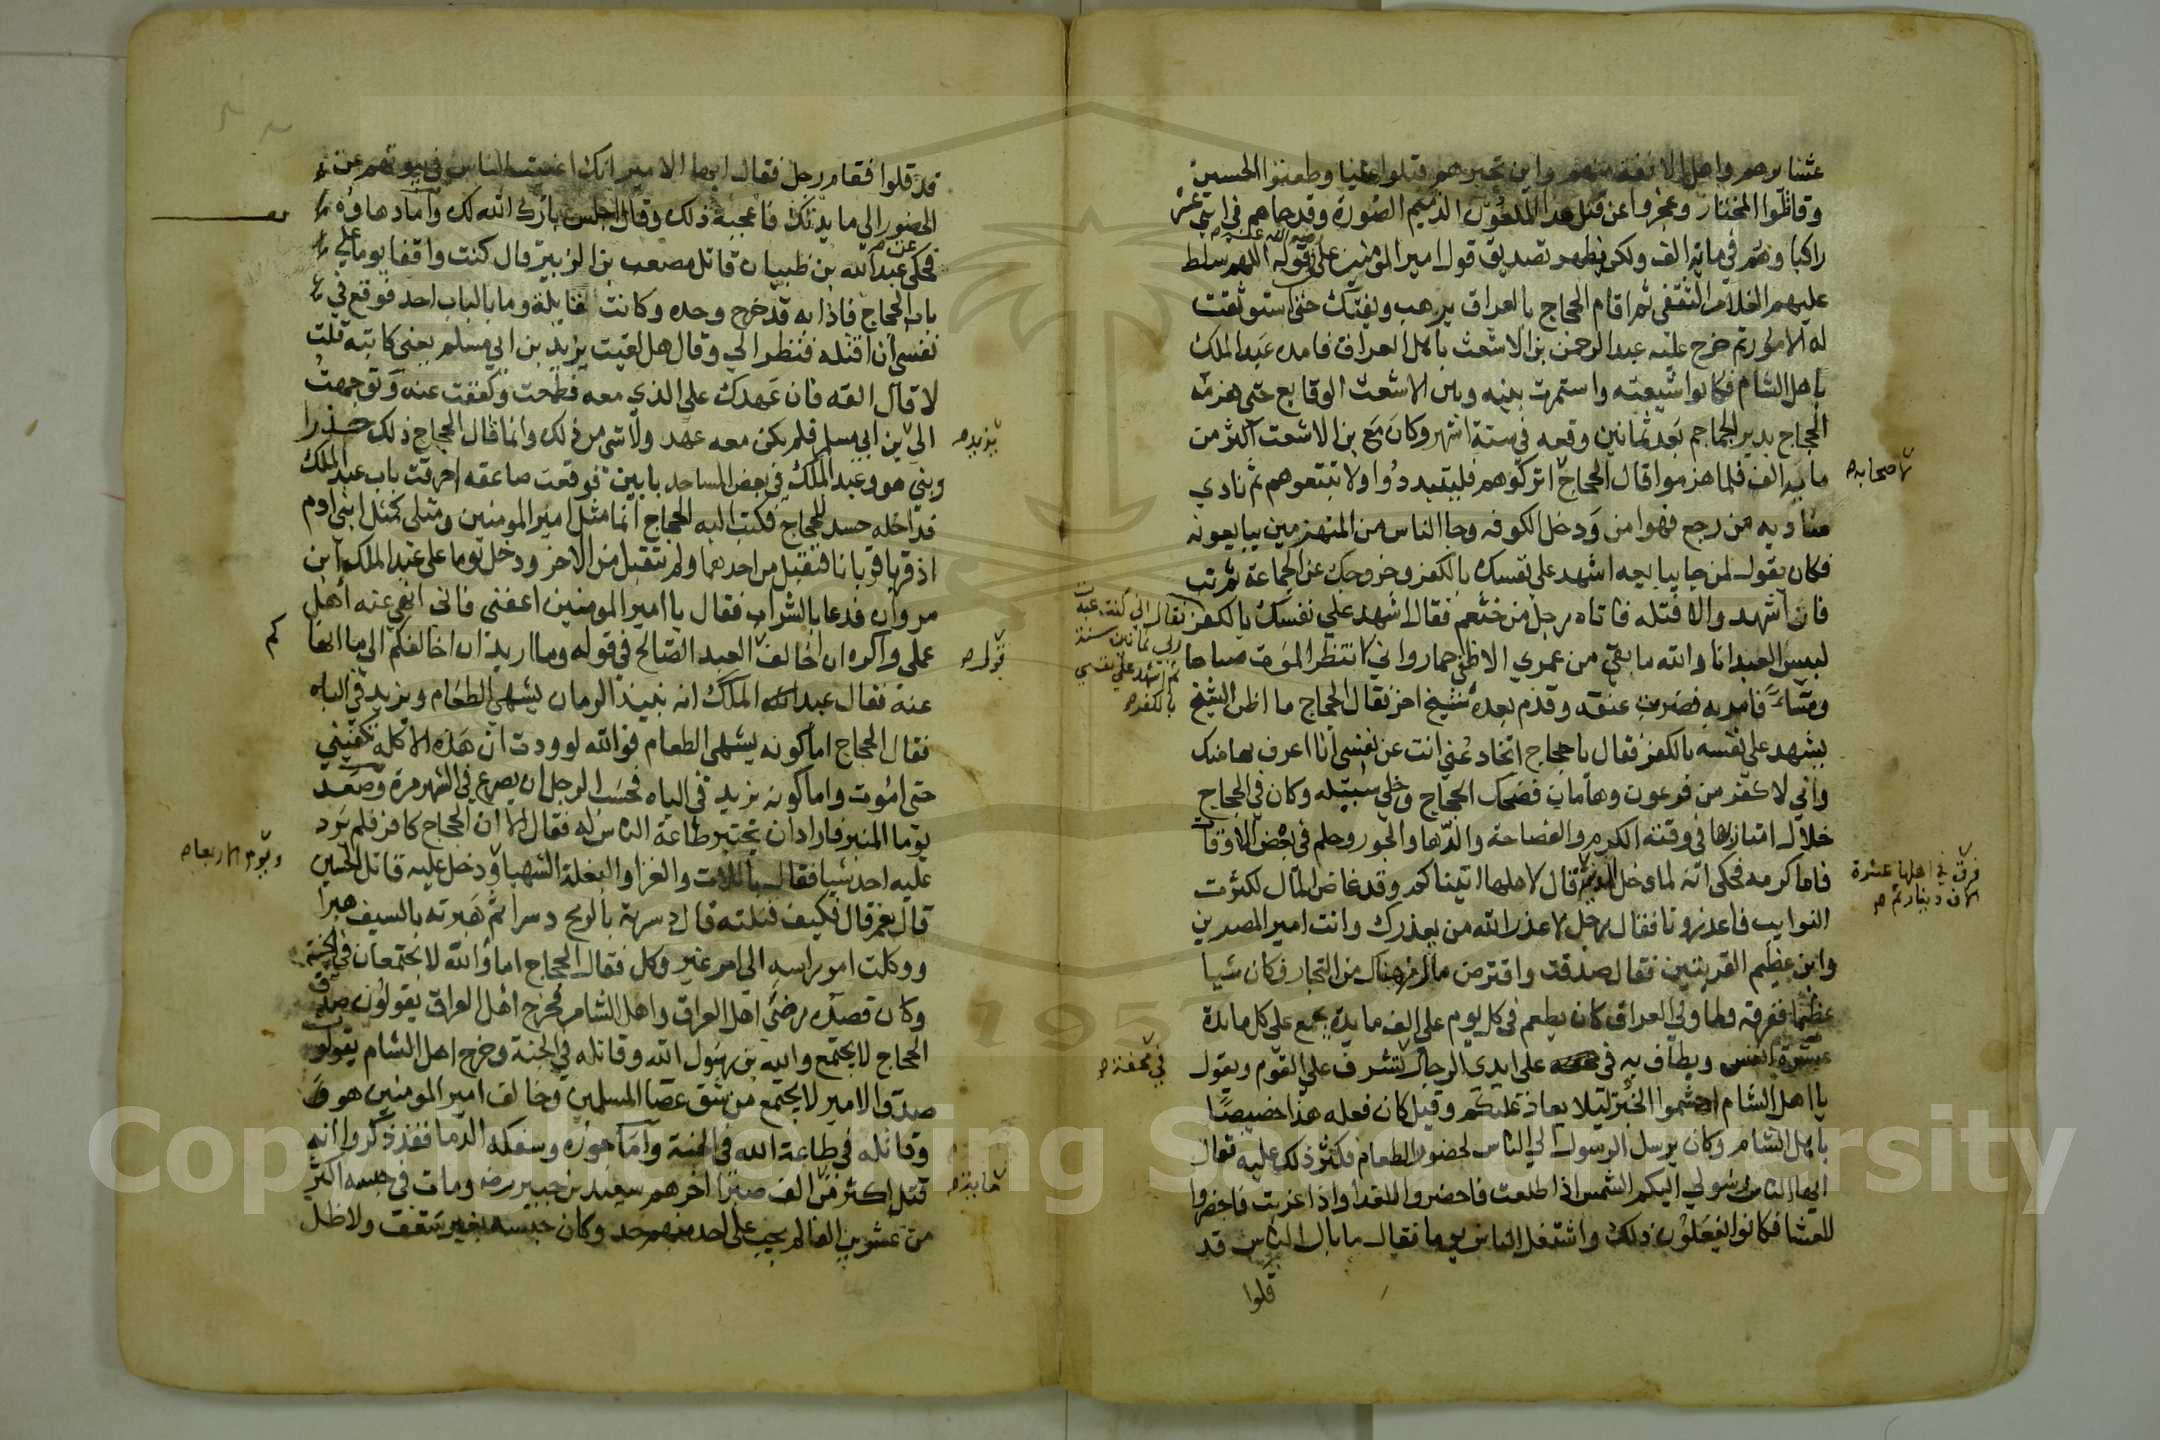 عشايرهم واهل الانفة منهم واين تجبرهم قتلوا عليا وطعنوا الحسين
وقاتلوا المختار وعجزوا عن قتل هذا الملعون الذميم الصورة وقد جاهم في اثني عشر
راكبا وهم في ماية الف ولكن يظهر تصديق قول امير المومنين علي رضي الله عنه قوله اللهم سلط
عليهم الغلام الثقفي ثم اقام الحجاج بالعراق يرهب ويفتك حتى استوثقت
له الامور ثم خرج عليه عبد الرحمن بن الاشعث باهل العراق فامده عبد الملك
باهل الشام فكانوا شيعته واستمرت بينه وبين الاشعث الوقايع حتى هزمه
الحجاج بدير الجماجم بعد ثمانين وقعه في ستة اشهر وكان مع بن الاشعث اكثر من
ماية الف فلما هزموا قال الحجاج اتركوهم فليتبددوا ولا تتبعوهم ثم نادي
لاصحابه
مناديه من رجع فهو امن ودخل الكوفه وجا الناس من المنهزمين يبايعونه
فكان يقول لمن جا يبايعه اشهد على نفسك بالكفر وخروجك عن الجماعة ثم تب
فان اشهد والا قتله فاتاه رجل من خثعم فقال اشهد علي نفسك بالكفر فقال اني كنت عبدت
ربي ثمانين سنة
ثم اشهد علي نفسي
بالكفر
لبيس العبد انا والله ما بقي من عمري الا ظمي حمار واني لانتظر الموت صباحا
ومساء فامر به فضربت عنقه وقدم بعده شيخ اخر فقال الحجاج ما اظن الشيخ
يشهد على نفسه بالكفر فقال يا حجاج اتخادعني انت عن نفسي انا اعرف بها منك
واني لاكفر من فرعون وهامان فضحك الحجاج وخلي سبيله وكان في الحجاج
خلال امتاز بها في وقته الكرم والفصاحة والدها والجور وحلم في بعض الاوقات
فاما كرمه فحكى انه لما دخل المدينة قال لاهلها اتيناكم وقد غاض المال لكثرت
فرق في اهلها عشرة
الاف دينار ثم
النوايب فاعذرونا فقال رجل لا عذر الله من يعذرك وانت امير المصرين
وابن عظيم القريتين فقال صدقت واقترض مالا من هناك من التجار فكان شيا
عظيما ففرقه ولما ولي العراق كان يطعم في كل يوم علي الف مايدة يجمع علي كل مايدة
عشرة انفس ويطاف به في محفة على ايدي الرجال لتشرف علي القوم ويقول
في محفة
يا اهل الشام اهشموا الخبز ليلا يعاد عليكم وقيل كان فعله هذا خصيصا
باهل الشام وكان يرسل الرسول الي الناس لحضور الطعام فكثر ذلك عليه فقال
ايها الناس رسولي اليكم الشمس اذا طلعت فاحضروا للغدا واذا غربت فاحضروا
للعشا فكانوا يفعلون ذلك واشتغل الناس يوما فقال ما بال الناس قد
قلوا
قد قلوا فقام رجل فقال ايها الامير انك اغنيت الناس في بيوتهم عن
الحضور الي مايدتك فاعجبه ذلك وقال اجلس بارك الله لك واما دهاوه
فحكى عن عبد الله بن ظبيان قاتل مصعب بن الزبير قال كنت واقفا يوما علي
باب الحجاج فاذا به قد خرج وحده وكانت قايلة وما بالباب احد فوقع في
نفسي ان اقتله فنظر الي وقال هل لقيت يزيد بن ابي مسلم يعني كاتبه قلت
لا قال القه فان عهدك على الذي معه فطمعت وكففت عنه وتوجهت
الى بن ابي مسلم فلم يكن معه عهد ولا شي من ذلك وانما قال الحجاج ذلك حذرا
يزيد
وبني هو وعبد الملك في بعض المساجد بابين فوقعت صاعقه احرقت باب عبد الملك
فداخله حسد للحجاج فكتب اليه الحجاج انما مثل امير المومنين ومثلي كمثل ابني ادم
اذ قربا قربانا فتقبل من احدهما ولم يتقبل من الاخر ودخل يوما على عبد الملك بن
مروان فدعا بالشراب فقال يا امير المومنين اعفني فاني انهي عنه اهل
عملي واكره ان اخالف العبد الصالح في قوله وما اريد ان اخالفكم الى ما انهاكم
قوله
عنه فقال عبد الملك انه نبيذ الرمان يشهي الطعام ويزيد في الباه
فقال الحجاج اما كونه يشهي الطعام فوالله لوددت ان هذه الاكلة تكفيني
حتى اموت واما كونه يزيد في الباه فحسب الرجل ان يصرع في الشهر مرة وصعد
يوما المنبر فاراد ان يختبر طاعة الناس له فقال الا ان الحجاج كافر فلم يرد
عليه احد شيا فقال باللات والعزا والبغلة الشهبا ودخل عليه قاتل الحسين
ويوم الاربعا
قال نعم قال فكيف قتلته قال دسرته بالرمح دسرا ثم هبرته بالسيف هبرا
ووكلت امر راسه الى امر غير وكل فقال الحجاج اما والله لا تجتمعان في الجنة
وكان قصده رضى اهل العراق واهل الشام فخرج اهل العراق يقولون صدق
الحجاج لا يجتمع والله بن رسول الله وقاتله في الجنة وخرج اهل الشام يقولون
صدق الامير لا يجتمع من شق عصا المسلمين وخالف امير المومنين هو
وقاتله في طاعة الله في الجنة واما جوره وسفكه الدما فقد ذكروا انه
قتل اكثر من الف صبرا اخرهم سعيد بن جبير رضه ومات في حبسه اكثر
ماية
من عشرين الفا لم يجب على احد منهم حد وكان حبسه بغير سقف ولا ظل